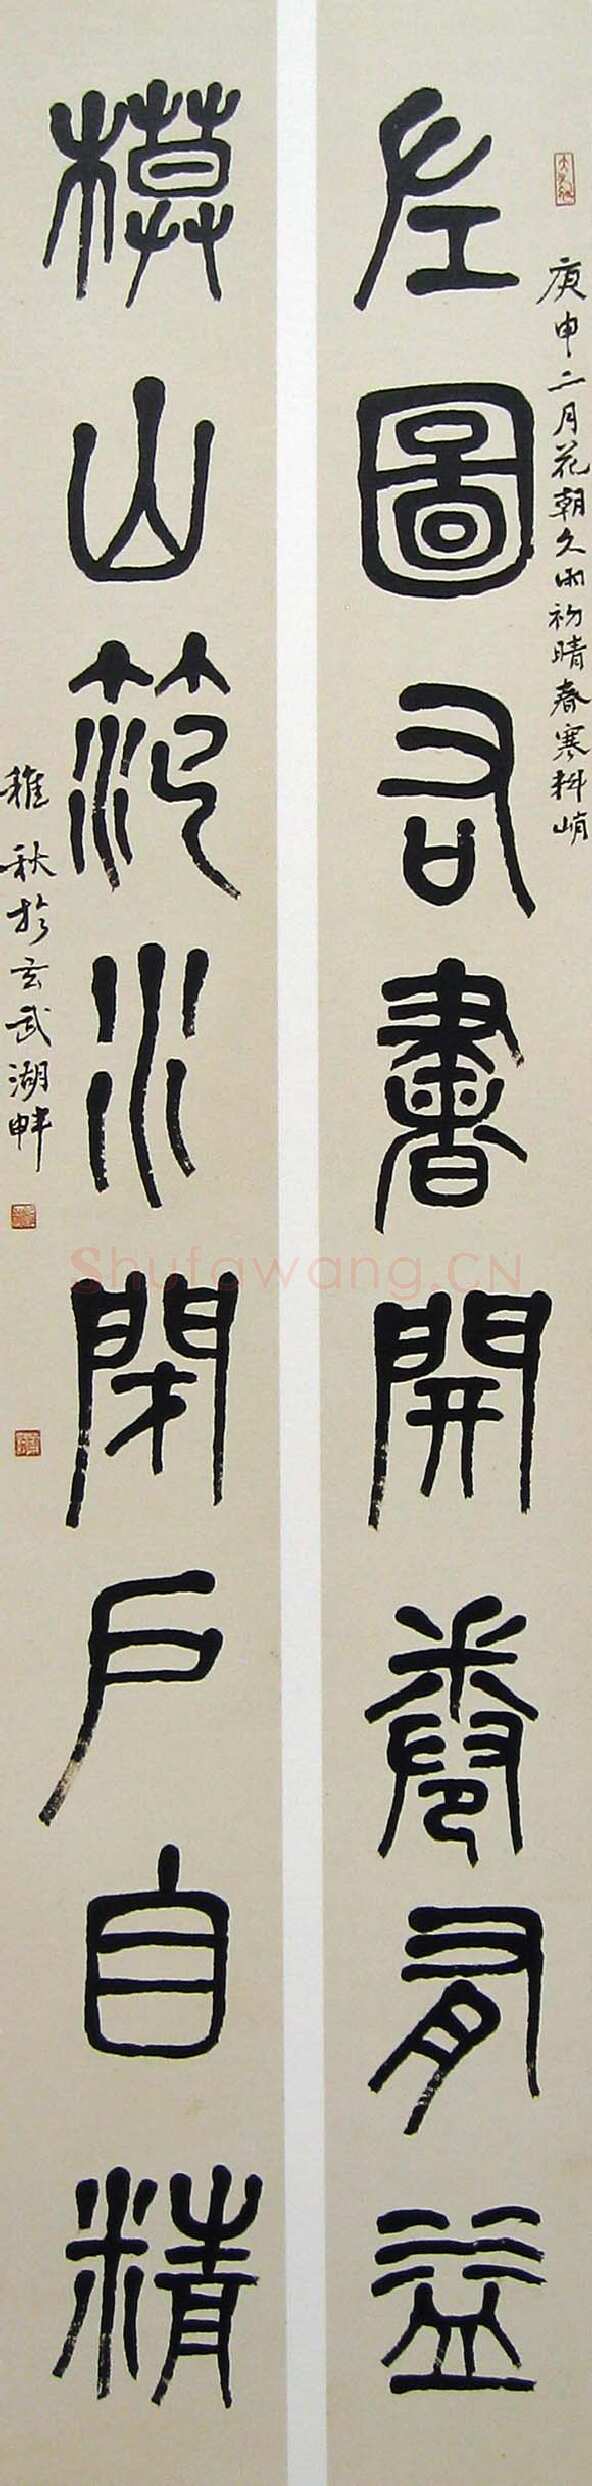 庚申二月花朝久雨初晴春寒料峭
左圖右書開卷有益
模山范水閉戶自精
稚秋於玄武湖畔
Shufawang.CN